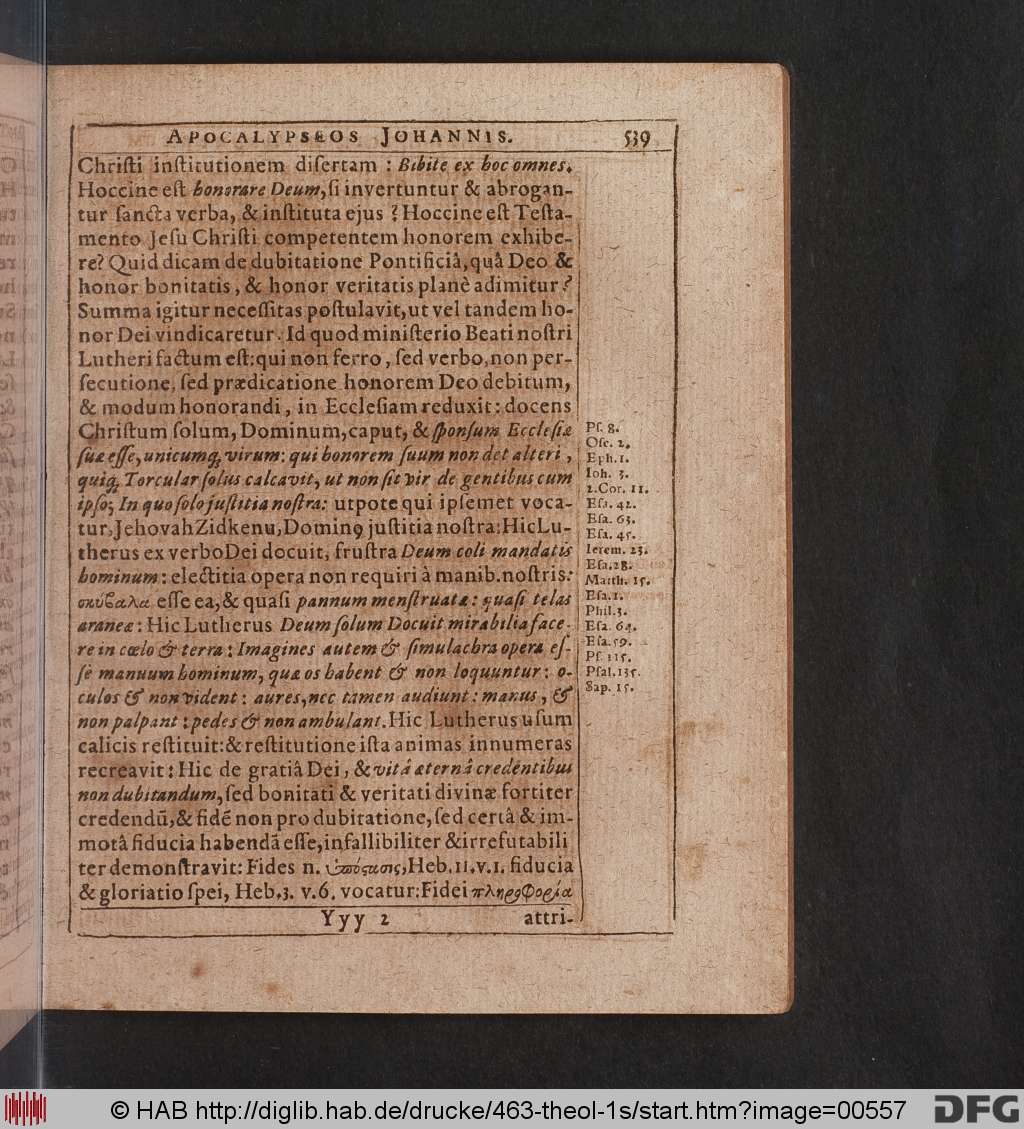 APOCALYPSEOS JOHANNIS. 539
Chriſti inſtitutionem diſertam : Bibite ex hoc omnes.
Hoccine eſt honorare Deum, ſi invertuntur & abrogan-
tur ſancta verba, & inſtituta ejus ? Hoccine eſt Teſta-
mento Jeſu Chriſti competentem honorem exhibe-
re? Quid dicam de dubitatione Pontificiâ, quâ Deo &
honor bonitatis, & honor veritatis planè adimitur?
Summa igitur neceſſitas poſtulavit, ut vel tandem ho-
nor Dei vindicaretur. Id quod miniſterio Beati noſtri
Lutheri factum eſt: qui non ferro, ſed verbo, non per-
ſecutione, ſed prædicatione honorem Deo debitum,
& modum honorandi, in Eccleſiam reduxit: docens
Chriſtum ſolum, Dominum, caput, & ſponſum Eccleſiæ
ſuæ eſſe, unicumq; virum: qui honorem ſuum non det alteri,
quiq; Torcular ſolus calcavit, ut non ſit vir de gentibus cum
ipſo; In quo ſolo juſtitia noſtra: utpote qui ipſemet voca-
tur, Jehovah Zidkenu, Dominꝰ juſtitia noſtra: Hic Lu-
therus ex verbo Dei docuit, fruſtra Deum coli mandatis
hominum: electitia opera non requiri à manib. noſtris:
σκύβαλα eſſe ea, & quaſi pannum menſtruatæ: quaſi telas
araneæ: Hic Lutherus Deum ſolum Docuit mirabilia face-
re in cœlo & terra: Imagines autem & ſimulachra opera eſ-
ſe manuum hominum, quæ os habent & non loquuntur: o-
culos & non vident: aures, nec tamen audiunt: manus, &
non palpant: pedes & non ambulant. Hic Lutherus uſum
calicis reſtituit: & reſtitutione iſta animas innumeras
recreavit: Hic de gratiâ Dei, & vitâ æternâ credentibus
non dubitandum, ſed bonitati & veritati divinæ fortiter
credendū, & fidē non pro dubitatione, ſed certâ & im-
motâ fiducia habendā eſſe, infallibiliter & irrefutabili
ter demonſtravit: Fides n. ὑπόςασις, Heb. 11. v. 1. fiducia
& gloriatio ſpei, Heb. 3. v. 6. vocatur: Fidei πληροφορία
Yyy 2 attri-
Pſ. 8.
Oſe. 2.
Eph. 1.
Ioh. 3.
2. Cor. 11.
Eſa. 42.
Eſa. 63.
Eſa. 45.
Ierem. 23.
Eſa. 28.
Matth. 15.
Eſa. 1.
Phil. 3.
Eſa. 64.
Eſa. 59.
Pſ. 115.
Pſal. 135.
Sap. 15.
© HAB http://diglib.hab.de/drucke/463-theol-1s/start.htm?image=00557
DFG